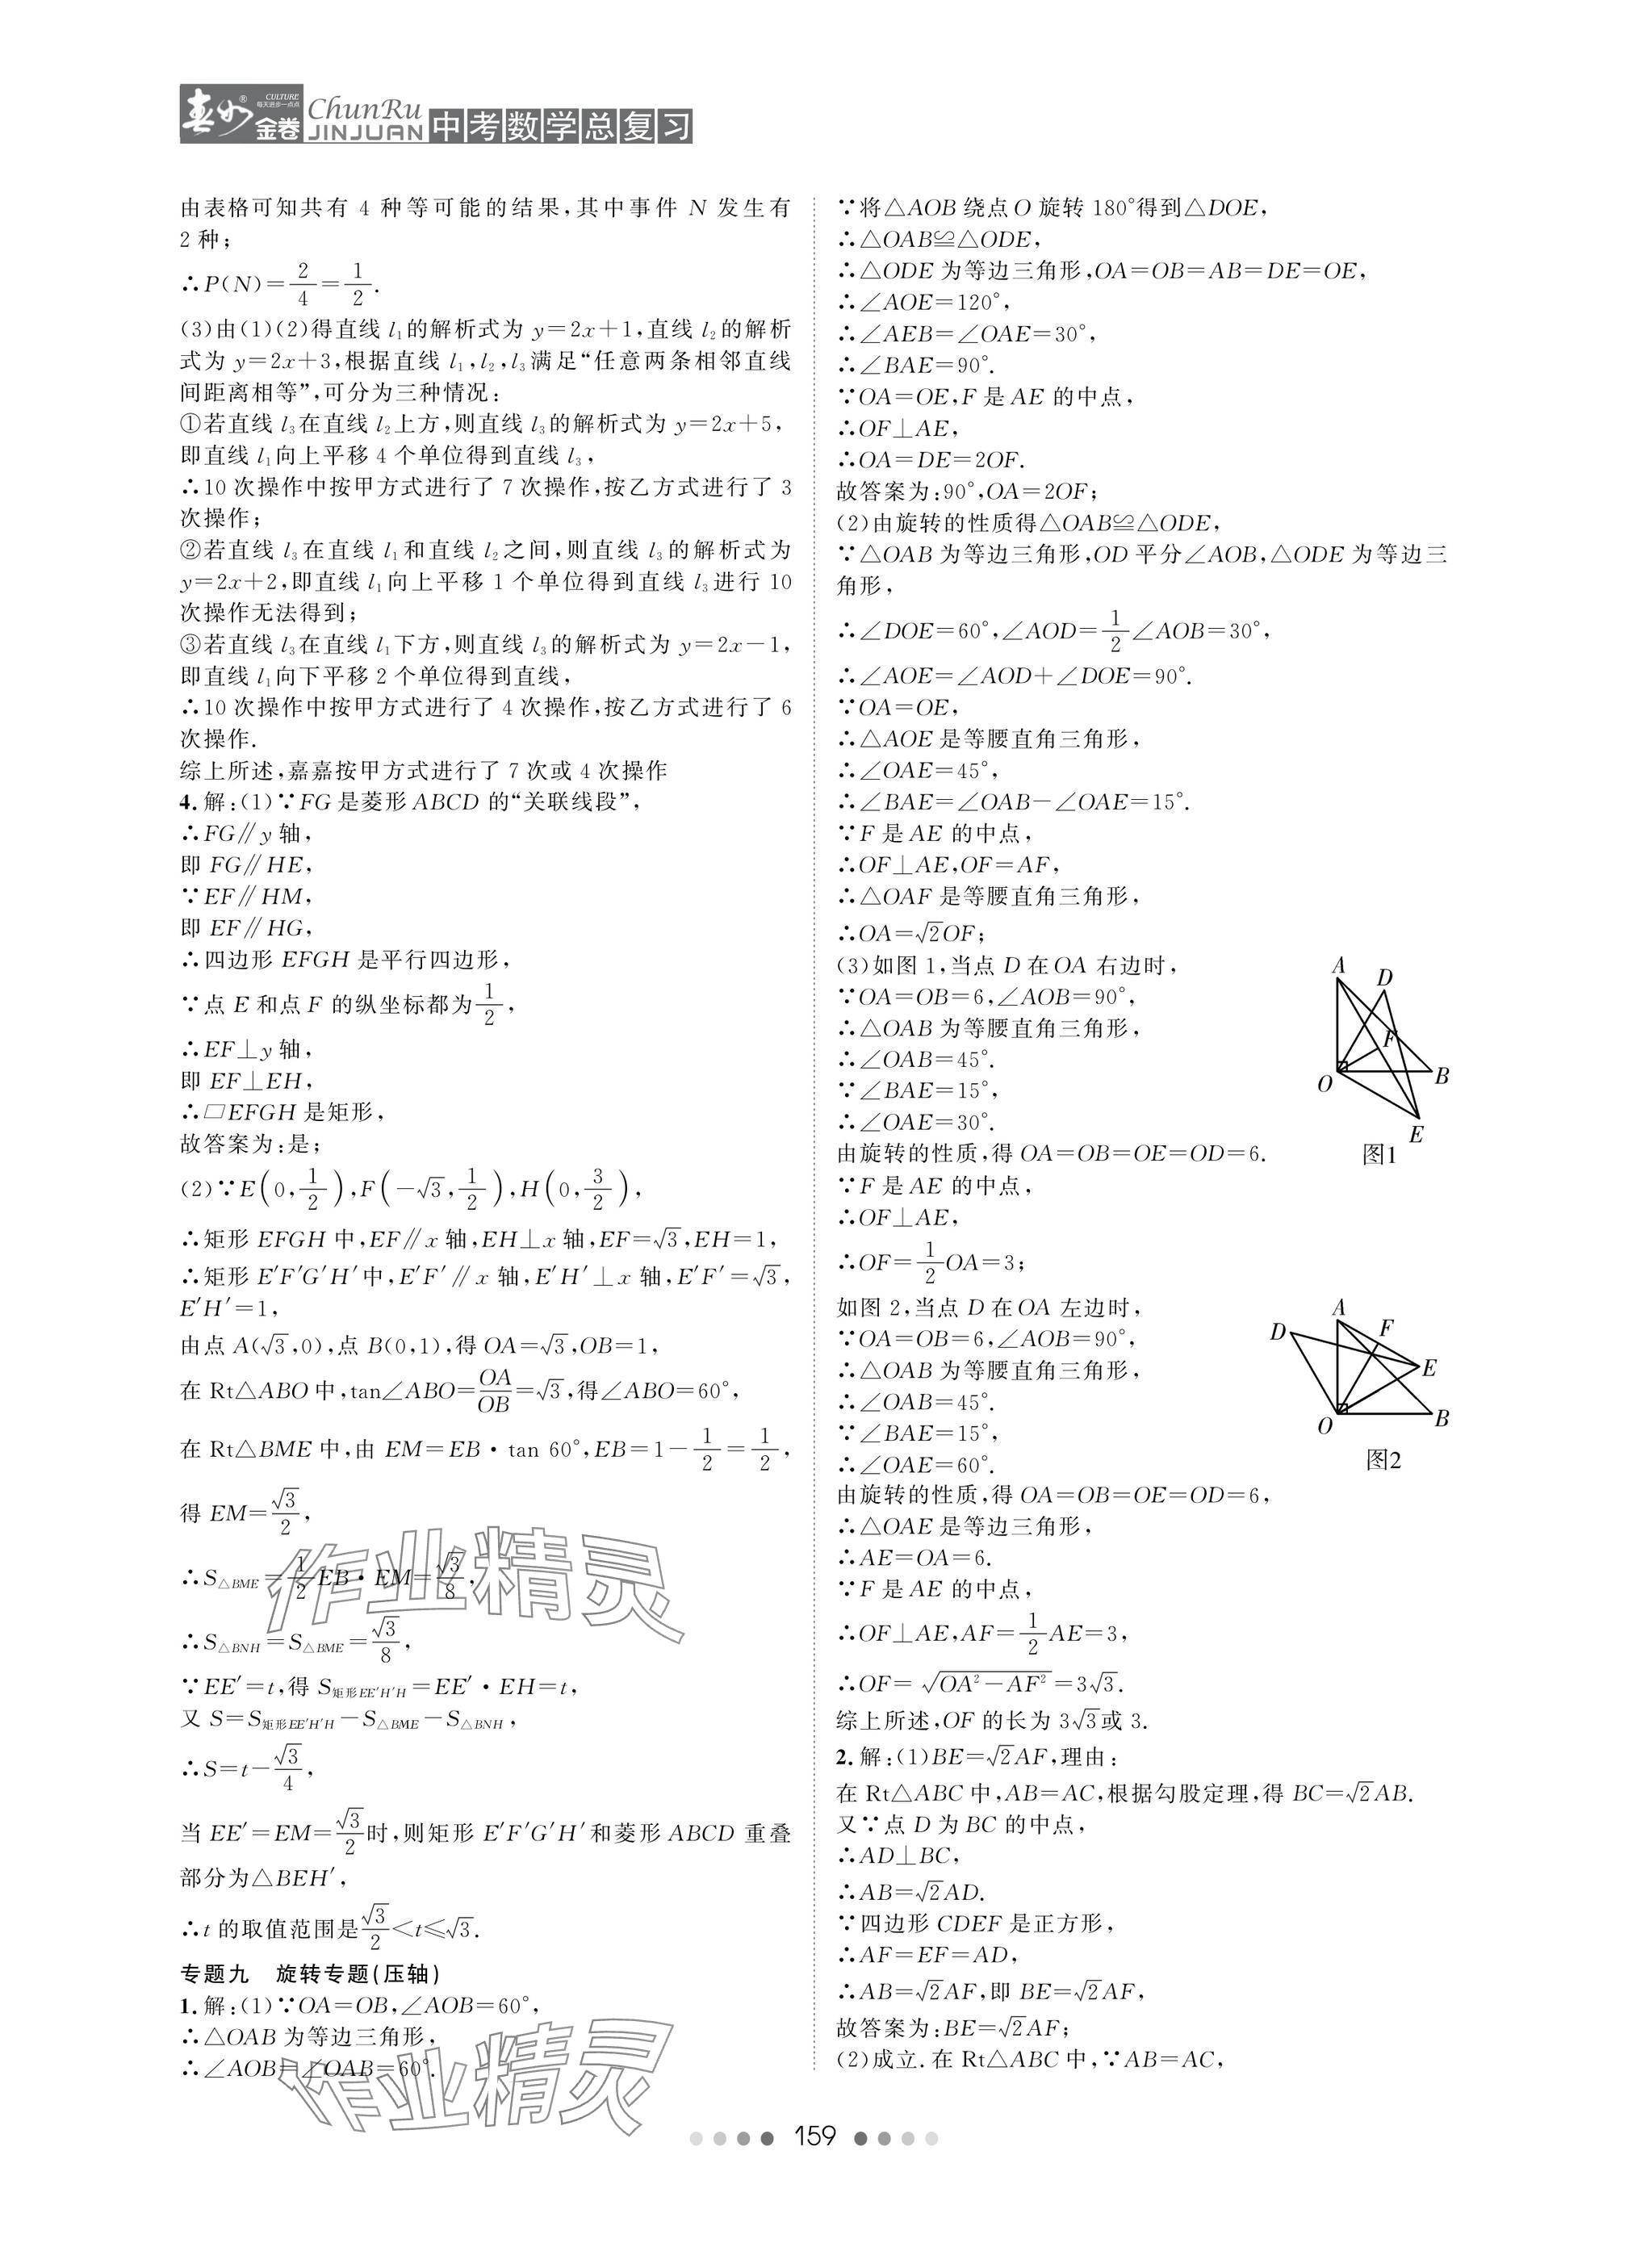 春如®金卷
CULTURE
每天进步一点点
ChunRu
JINJUAN
中考数学总复习
由表格可知共有 4 种等可能的结果,其中事件 N 发生有
2 种;
∴P(N)=2/4=1/2.
(3)由(1)(2)得直线 l₁的解析式为 y=2x+1,直线 l₂的解析
式为 y=2x+3,根据直线 l₁,l₂,l₃满足“任意两条相邻直线
间距离相等”,可分为三种情况:
①若直线 l₃在直线 l₂上方,则直线 l₃的解析式为 y=2x+5,
即直线 l₁向上平移 4 个单位得到直线 l₃,
∴10 次操作中按甲方式进行了 7 次操作,按乙方式进行了 3
次操作;
②若直线 l₃在直线 l₁和直线 l₂之间,则直线 l₃的解析式为
y=2x+2,即直线 l₁向上平移 1 个单位得到直线 l₃进行 10
次操作无法得到;
③若直线 l₃在直线 l₁下方,则直线 l₃的解析式为 y=2x−1,
即直线 l₁向下平移 2 个单位得到直线,
∴10 次操作中按甲方式进行了 4 次操作,按乙方式进行了 6
次操作.
综上所述,嘉嘉按甲方式进行了 7 次或 4 次操作
4.解:(1)∵FG是菱形ABCD的“关联线段”,
∴FG∥y轴,
即 FG∥HE,
∵EF∥HM,
即 EF∥HG,
∴四边形 EFGH 是平行四边形,
∵点 E 和点 F 的纵坐标都为1/2,
∴EF⊥y轴,
即 EF⊥EH,
∴▱EFGH 是矩形,
故答案为:是;
(2)∵E(0,1/2),F(−√3,1/2),H(0,3/2),
∴矩形 EFGH 中,EF∥x轴,EH⊥x轴,EF=√3,EH=1,
∴矩形 E′F′G′H′中,E′F′∥x轴,E′H′⊥x轴,E′F′=√3,
E′H′=1,
由点 A(√3,0),点 B(0,1),得 OA=√3,OB=1,
在 Rt△ABO中,tan∠ABO=OA/OB=√3,得∠ABO=60°,
在 Rt△BME 中,由 EM=EB·tan 60°,EB=1−1/2=1/2,
得 EM=√3/2,
∴S△BME=1/2EB·EM=√3/8,
∴S△BNH=S△BME=√3/8,
∵EE′=t,得 S矩形EE′H′H=EE′·EH=t,
又 S=S矩形EE′H′H−S△BME−S△BNH,
∴S=t−√3/4,
当 EE′=EM=√3/2时,则矩形 E′F′G′H′和菱形 ABCD 重叠
部分为△BEH′,
∴t 的取值范围是√3/2<t≤√3.
专题九 旋转专题(压轴)
1.解:(1)∵OA=OB,∠AOB=60°,
∴△OAB为等边三角形,
∴∠AOB=∠OAB=60°.
∵将△AOB绕点O旋转180°得到△DOE,
∴△OAB≌△ODE,
∴△ODE为等边三角形,OA=OB=AB=DE=OE,
∴∠AOE=120°,
∴∠AEB=∠OAE=30°,
∴∠BAE=90°.
∵OA=OE,F是AE的中点,
∴OF⊥AE,
∴OA=DE=2OF.
故答案为:90°,OA=2OF;
(2)由旋转的性质得△OAB≌△ODE,
∵△OAB为等边三角形,OD平分∠AOB,△ODE为等边三
角形,
∴∠DOE=60°,∠AOD=1/2∠AOB=30°,
∴∠AOE=∠AOD+∠DOE=90°.
∵OA=OE,
∴△AOE是等腰直角三角形,
∴∠OAE=45°,
∴∠BAE=∠OAB−∠OAE=15°.
∵F是AE的中点,
∴OF⊥AE,OF=AF,
∴△OAF是等腰直角三角形,
∴OA=√2OF;
(3)如图1,当点D在OA右边时,
∵OA=OB=6,∠AOB=90°,
∴△OAB为等腰直角三角形,
∴∠OAB=45°.
∵∠BAE=15°,
∴∠OAE=30°.
由旋转的性质,得OA=OB=OE=OD=6.
∵F是AE的中点,
∴OF⊥AE,
∴OF=1/2OA=3;
A
D
F
O
B
E
图1
如图2,当点D在OA左边时,
∵OA=OB=6,∠AOB=90°,
∴△OAB为等腰直角三角形,
∴∠OAB=45°.
∵∠BAE=15°,
∴∠OAE=60°.
由旋转的性质,得OA=OB=OE=OD=6,
∴△OAE是等边三角形,
∴AE=OA=6.
∵F是AE的中点,
∴OF⊥AE,AF=1/2AE=3,
∴OF=√(OA²−AF²)=3√3.
综上所述,OF的长为3√3或3.
A
D
F
E
O
B
图2
2.解:(1)BE=√2AF,理由:
在Rt△ABC中,AB=AC,根据勾股定理,得BC=√2AB.
又∵点D为BC的中点,
∴AD⊥BC,
∴AB=√2AD.
∵四边形CDEF是正方形,
∴AF=EF=AD,
∴AB=√2AF,即BE=√2AF,
故答案为:BE=√2AF;
(2)成立.在Rt△ABC中,∵AB=AC,
作业精灵
作业精灵
159